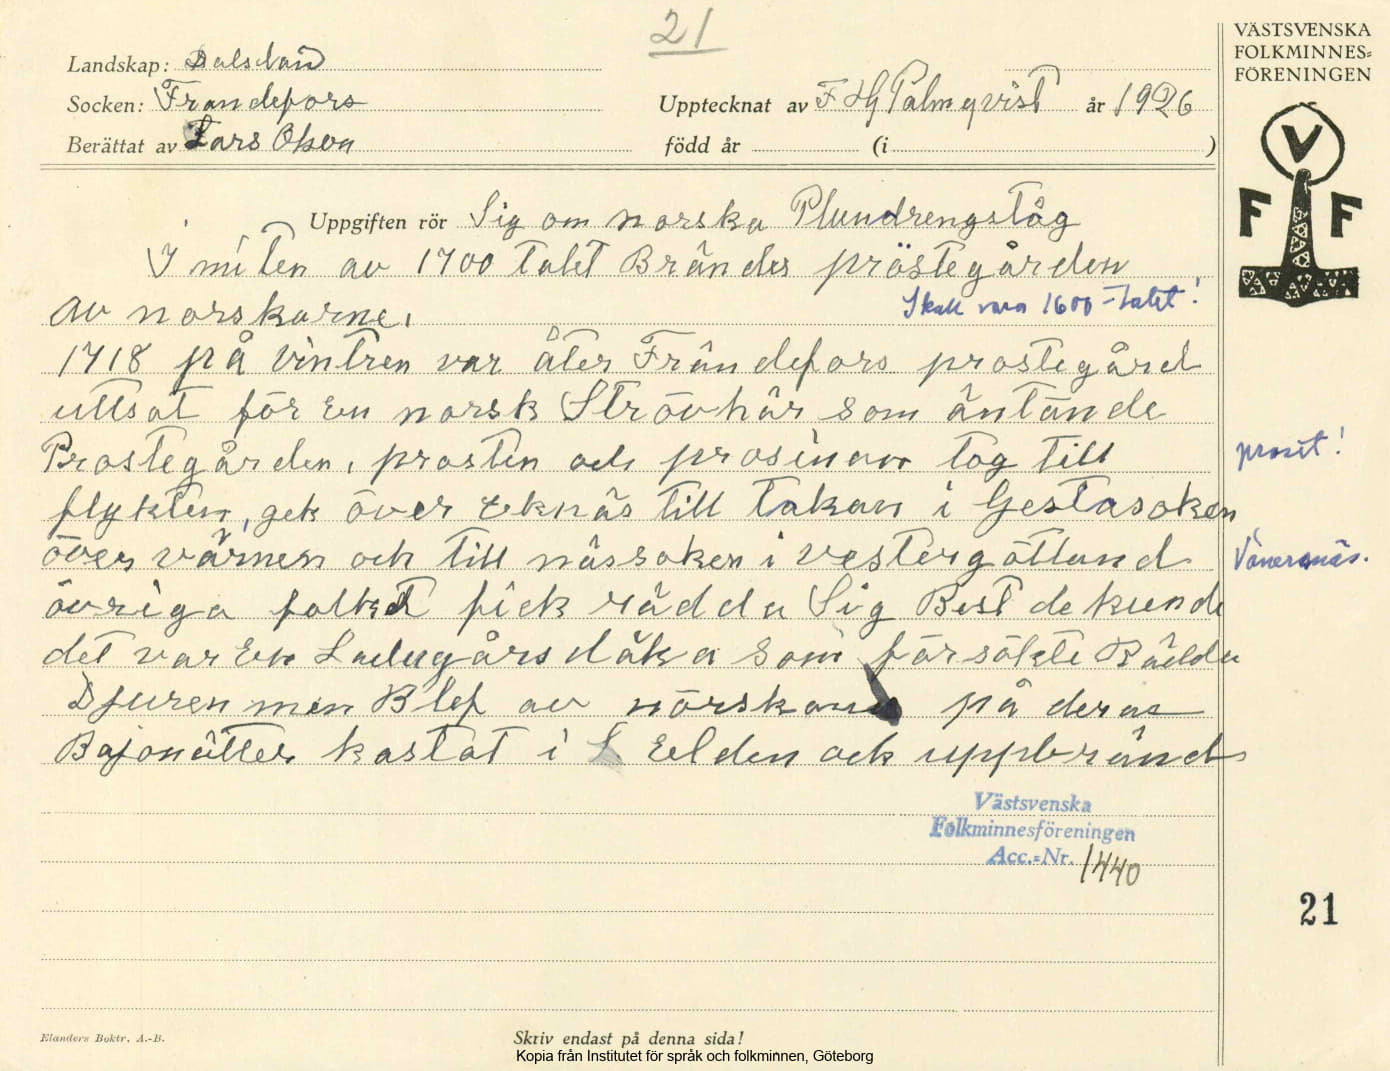 21
VÄSTSVENSKA
FOLKMINNES=
FÖRENINGEN
V
F F
Landskap: Dalsland
Socken: Frändefors
Upptecknat av F Hj Palmqvist år 1926
Berättat av Lars Olson
född år (i )
Uppgiften rör Sig om norska Plundrengståg
I miten av 1700 talet Brändes pröstegården
av norskarne.
Skall vara 1600-talet!
1718 på vintren var åter Frändefors prostegård
uttsat för en norsk Strövhär som äntände
Prostegården, prosten och prosinan tog till
prosit!
flykten, gek över Eknäs till takan i Gestasoken
över värnen och till nässoken i vestergötland
Vänersnäs.
övriga folket fick rädda Sig Best de kunde
det var En Ladugårsdåka som försökte Rädda
Djuren men Blef av nörskana på deras
Bajonätter kastat i Eelden ock uppbränd
Västsvenska
Folkminnesföreningen
Acc.=Nr. 1440
21
Elanders Boktr. A.-B.
Skriv endast på denna sida!
Kopia från Institutet för språk och folkminnen, Göteborg